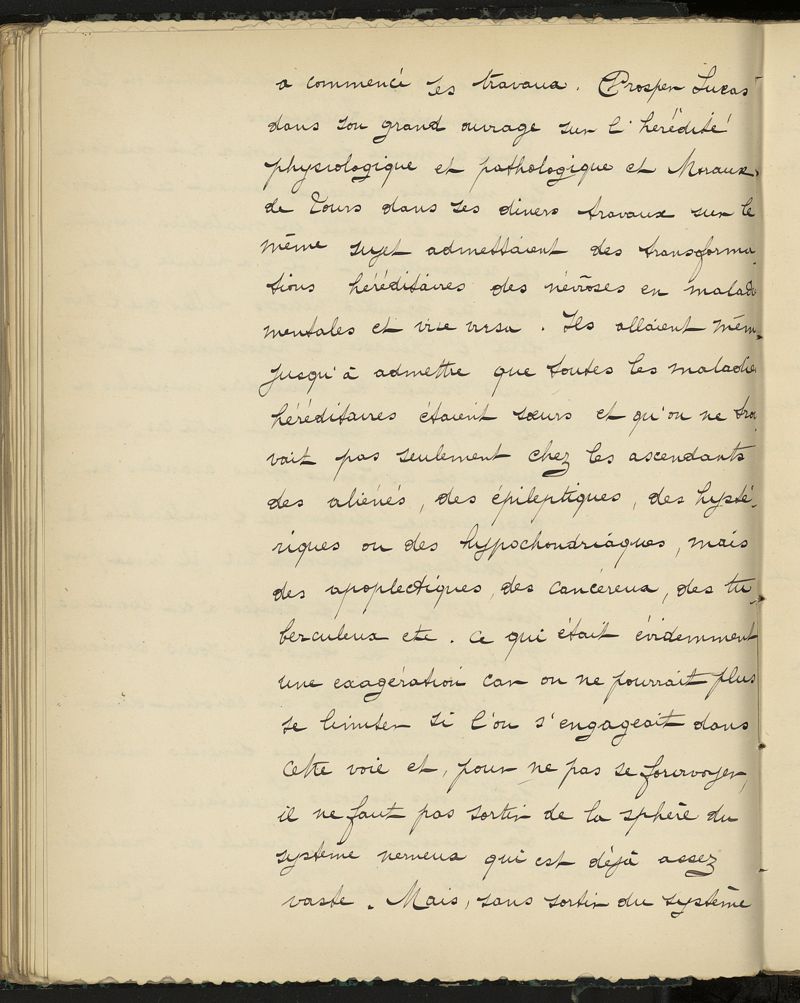 a commencé ses travaux. Prosper Lucas
dans son grand ouvrage sur l'hérédité
physiologique et pathologique et Moraux
de Tours dans ses divers travaux sur le
même sujet admettaient des transforma-
tions héréditaires des névroses en malad
mentales et vice versa. Ils allaient mêm
jusqu'à admettre que toutes les maladie
héréditaires étaient sœurs et qu'on ne trou
vait pas seulement chez les ascendants
des aliénés, des épileptiques, des hysté-
riques ou des hypochondriaques, mais
des apoplectiques, des cancéreux, des tu-
berculeux etc. ce qui était évidemment
une exagération car on ne pourrait plus
se limiter si l'on s'engageait dans
cette voie et, pour ne pas se fourvoyer,
il ne faut pas sortir de la sphère du
système nerveux qui est déjà assez
vaste. Mais, sans sortir du système